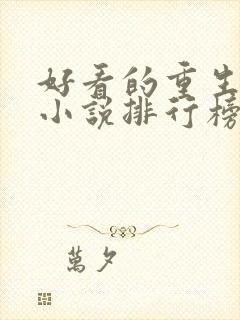 好看的重生
小说排行榜
萬夕